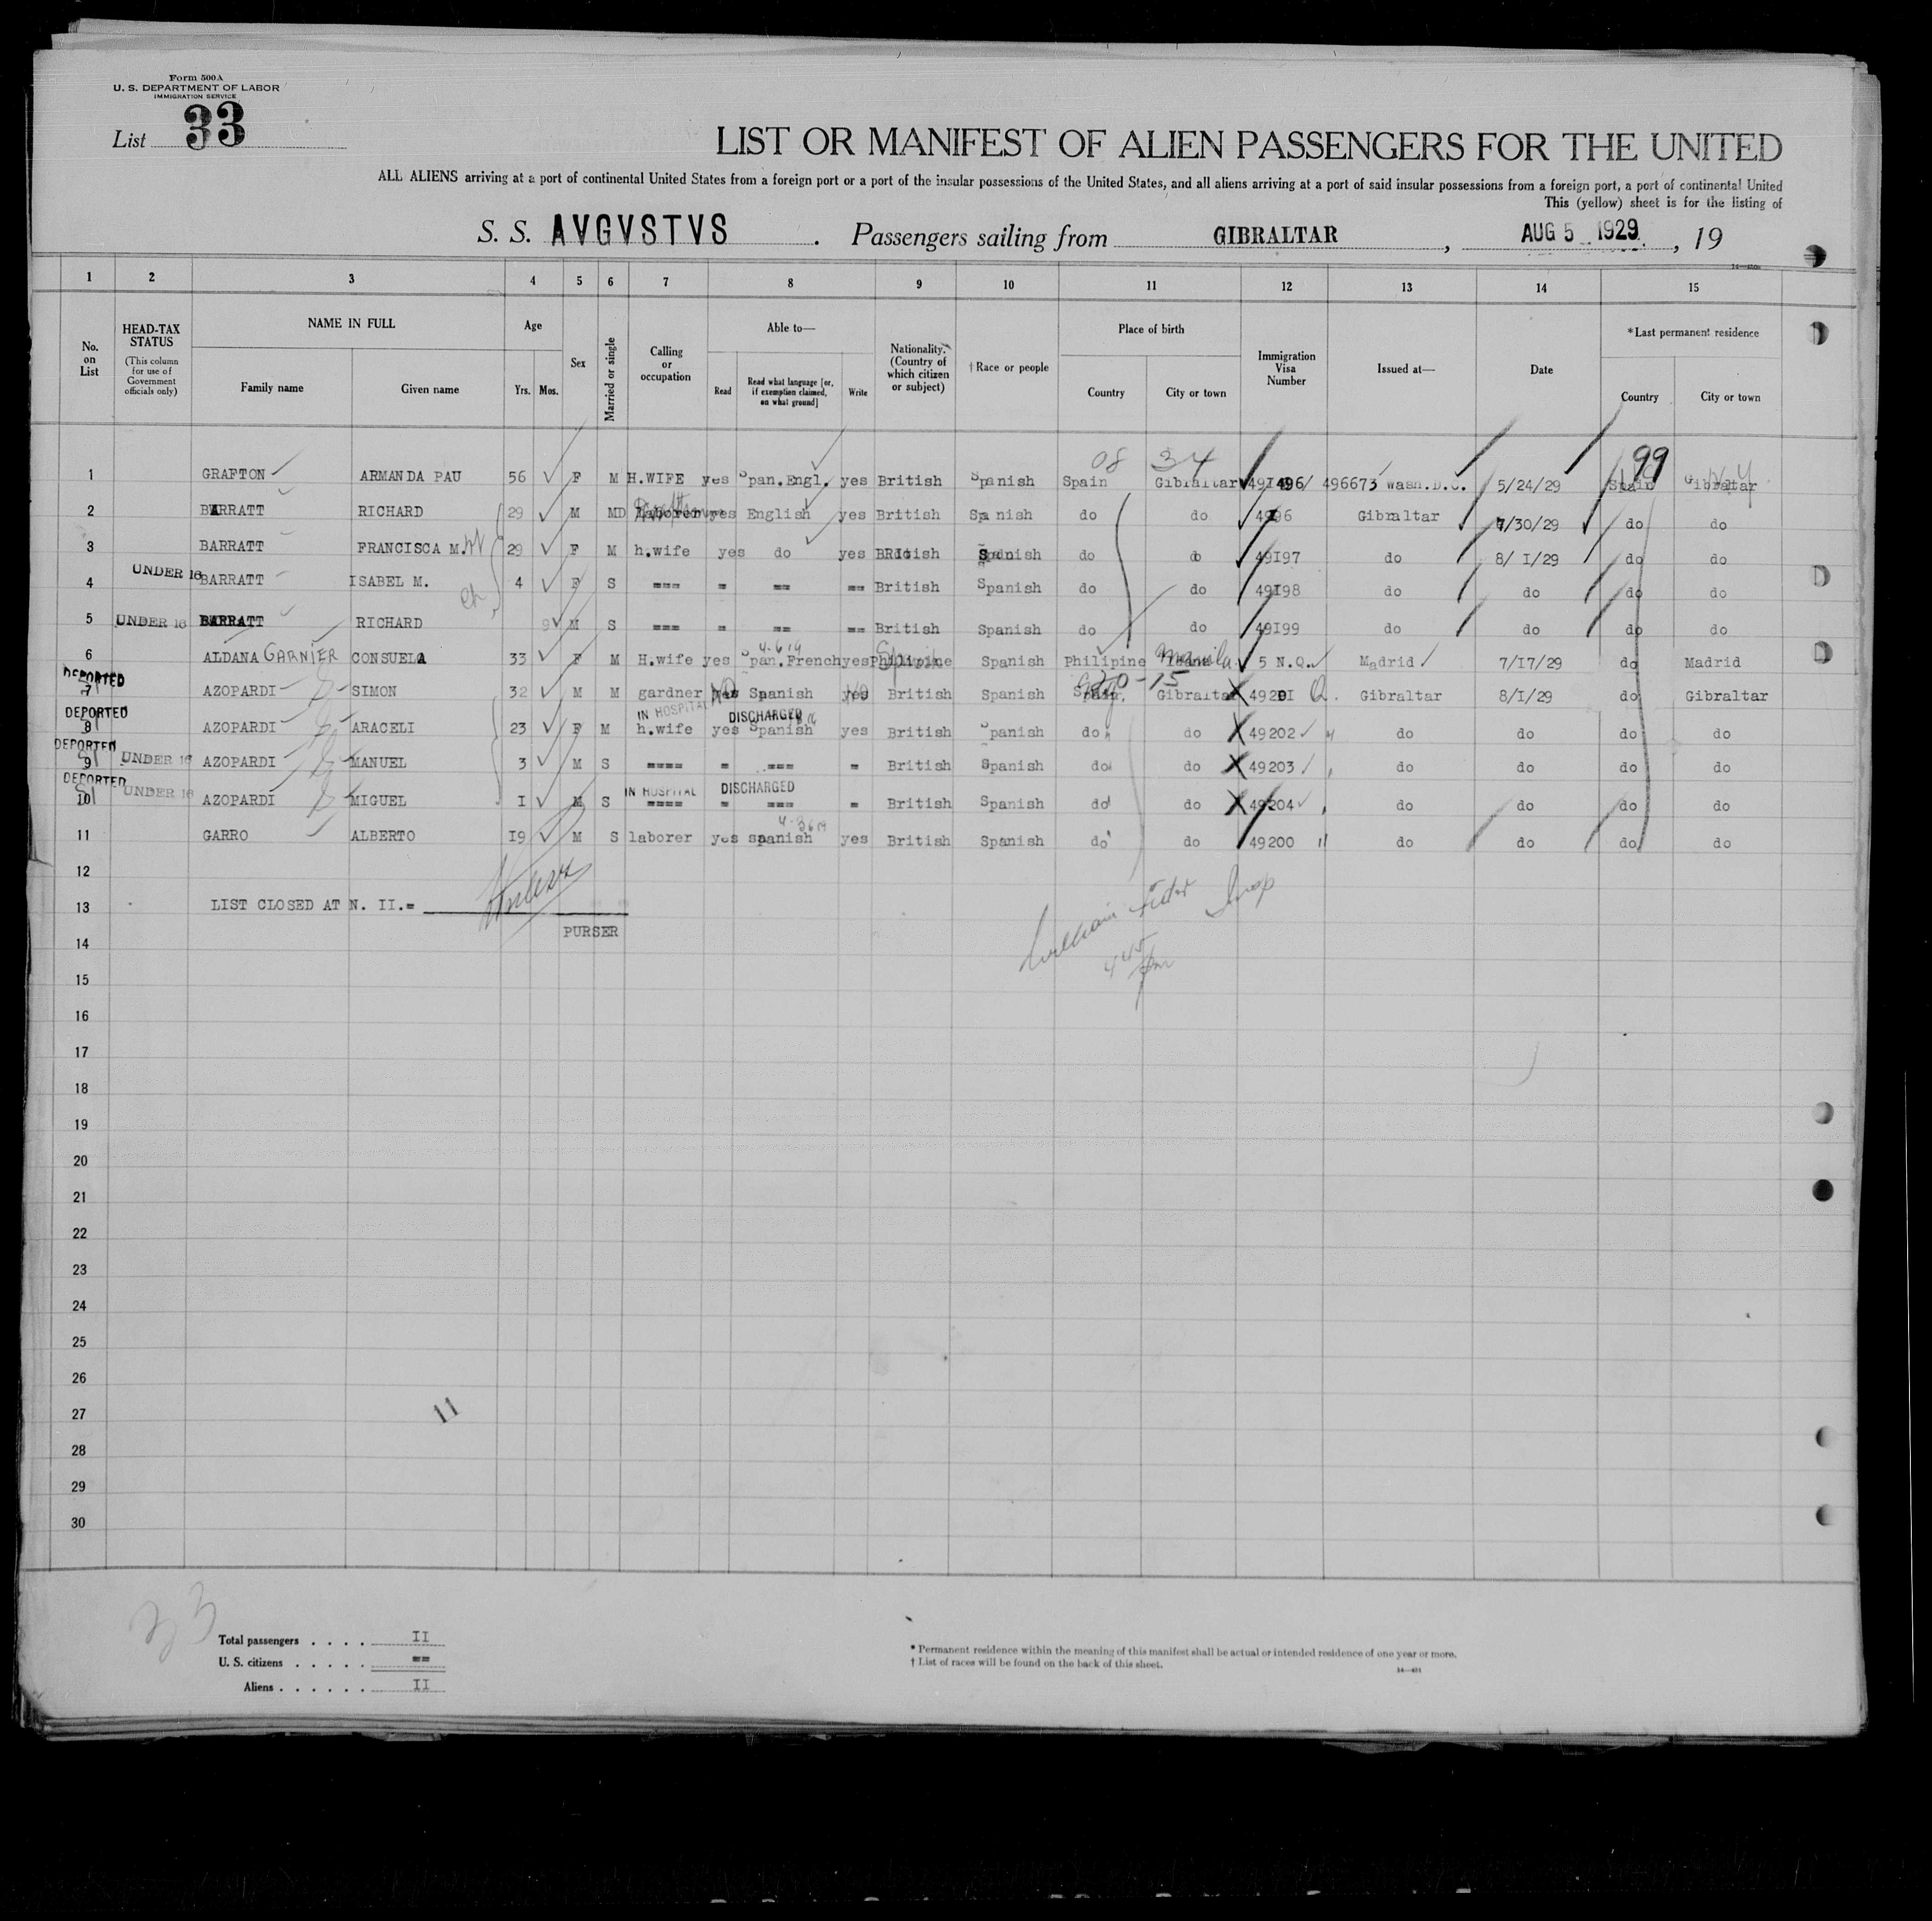 Form 500A
U. S. DEPARTMENT OF LABOR
IMMIGRATION SERVICE
List 33
LIST OR MANIFEST OF ALIEN PASSENGERS FOR THE UNITED
ALL ALIENS arriving at a port of continental United States from a foreign port or a port of the insular possessions of the United States, and all aliens arriving at a port of said insular possessions from a foreign port, a port of continental United
This (yellow) sheet is for the listing of
S. S. AVGVSTVS . Passengers sailing from GIBRALTAR , AUG 5 1929 , 19
1 2 3 4 5 6 7 8 9 10 11 12 13 14 15
No. on List
HEAD-TAX STATUS (This column for use of Government officials only)
NAME IN FULL
Family name Given name
Age
Yrs. Mos.
Sex
Married or single
Calling or occupation
Able to—
Read Read what language [or, if exemption claimed, on what ground] Write
Nationality. (Country of which citizen or subject)
†Race or people
Place of birth
Country City or town
Immigration Visa Number
Issued at—
Date
*Last permanent residence
Country City or town
08 34 99
1 GRAFTON ARMANDA PAU 56 F M H.WIFE yes Span.Engl. yes British Spanish Spain Gibraltar 496673 Wash.D.C. 5/24/29 Spain Gibraltar
2 BARRATT RICHARD 29 M MD Laborer yes English yes British Spanish do do Gibraltar 7/30/29 do do
3 BARRATT FRANCISCA M. W 29 F M h.wife yes do yes British Spanish do do 49I97 do 8/ I/29 do do
4 UNDER 16 BARRATT ISABEL M. ch 4 F S --- - -- -- British Spanish do do 49I98 do do do do
5 UNDER 16 BARRATT RICHARD 9 M S --- - -- -- British Spanish do do 49I99 do do do do
6 ALDANA GARNIER CONSUELA 33 F M H.wife yes Span.French yes Philipine Spanish Philipine Manila 5 N.Q. Madrid 7/17/29 do Madrid
20-15
DEPORTED
7 AZOPARDI SIMON 32 M M gardner NO Spanish NO British Spanish Spain Gibraltar 4920I Q. Gibraltar 8/1/29 do Gibraltar
DEPORTED IN HOSPITAL DISCHARGED
8 AZOPARDI ARACELI 23 F M h.wife yes Spanish yes British Spanish do do 49202 do do do do
DEPORTED
9 UNDER 16 AZOPARDI MANUEL 3 M S ---- - --- - British Spanish do do 49203 do do do do
DEPORTED IN HOSPITAL DISCHARGED
10 UNDER 16 AZOPARDI MIGUEL I M S ---- - --- - British Spanish do do 49204 do do do do
11 GARRO ALBERTO I9 M S laborer yes spanish yes British Spanish do do 49200 do do do do
12
13 LIST CLOSED AT N. II.=
PURSER
William Insp
445 pm
14
15
16
17
18
19
20
21
22
23
24
25
26
27
28
29
30
11
33
Total passengers . . . . II
U. S. citizens . . . . . ==
Aliens . . . . . . II
* Permanent residence within the meaning of this manifest shall be actual or intended residence of one year or more.
† List of races will be found on the back of this sheet.